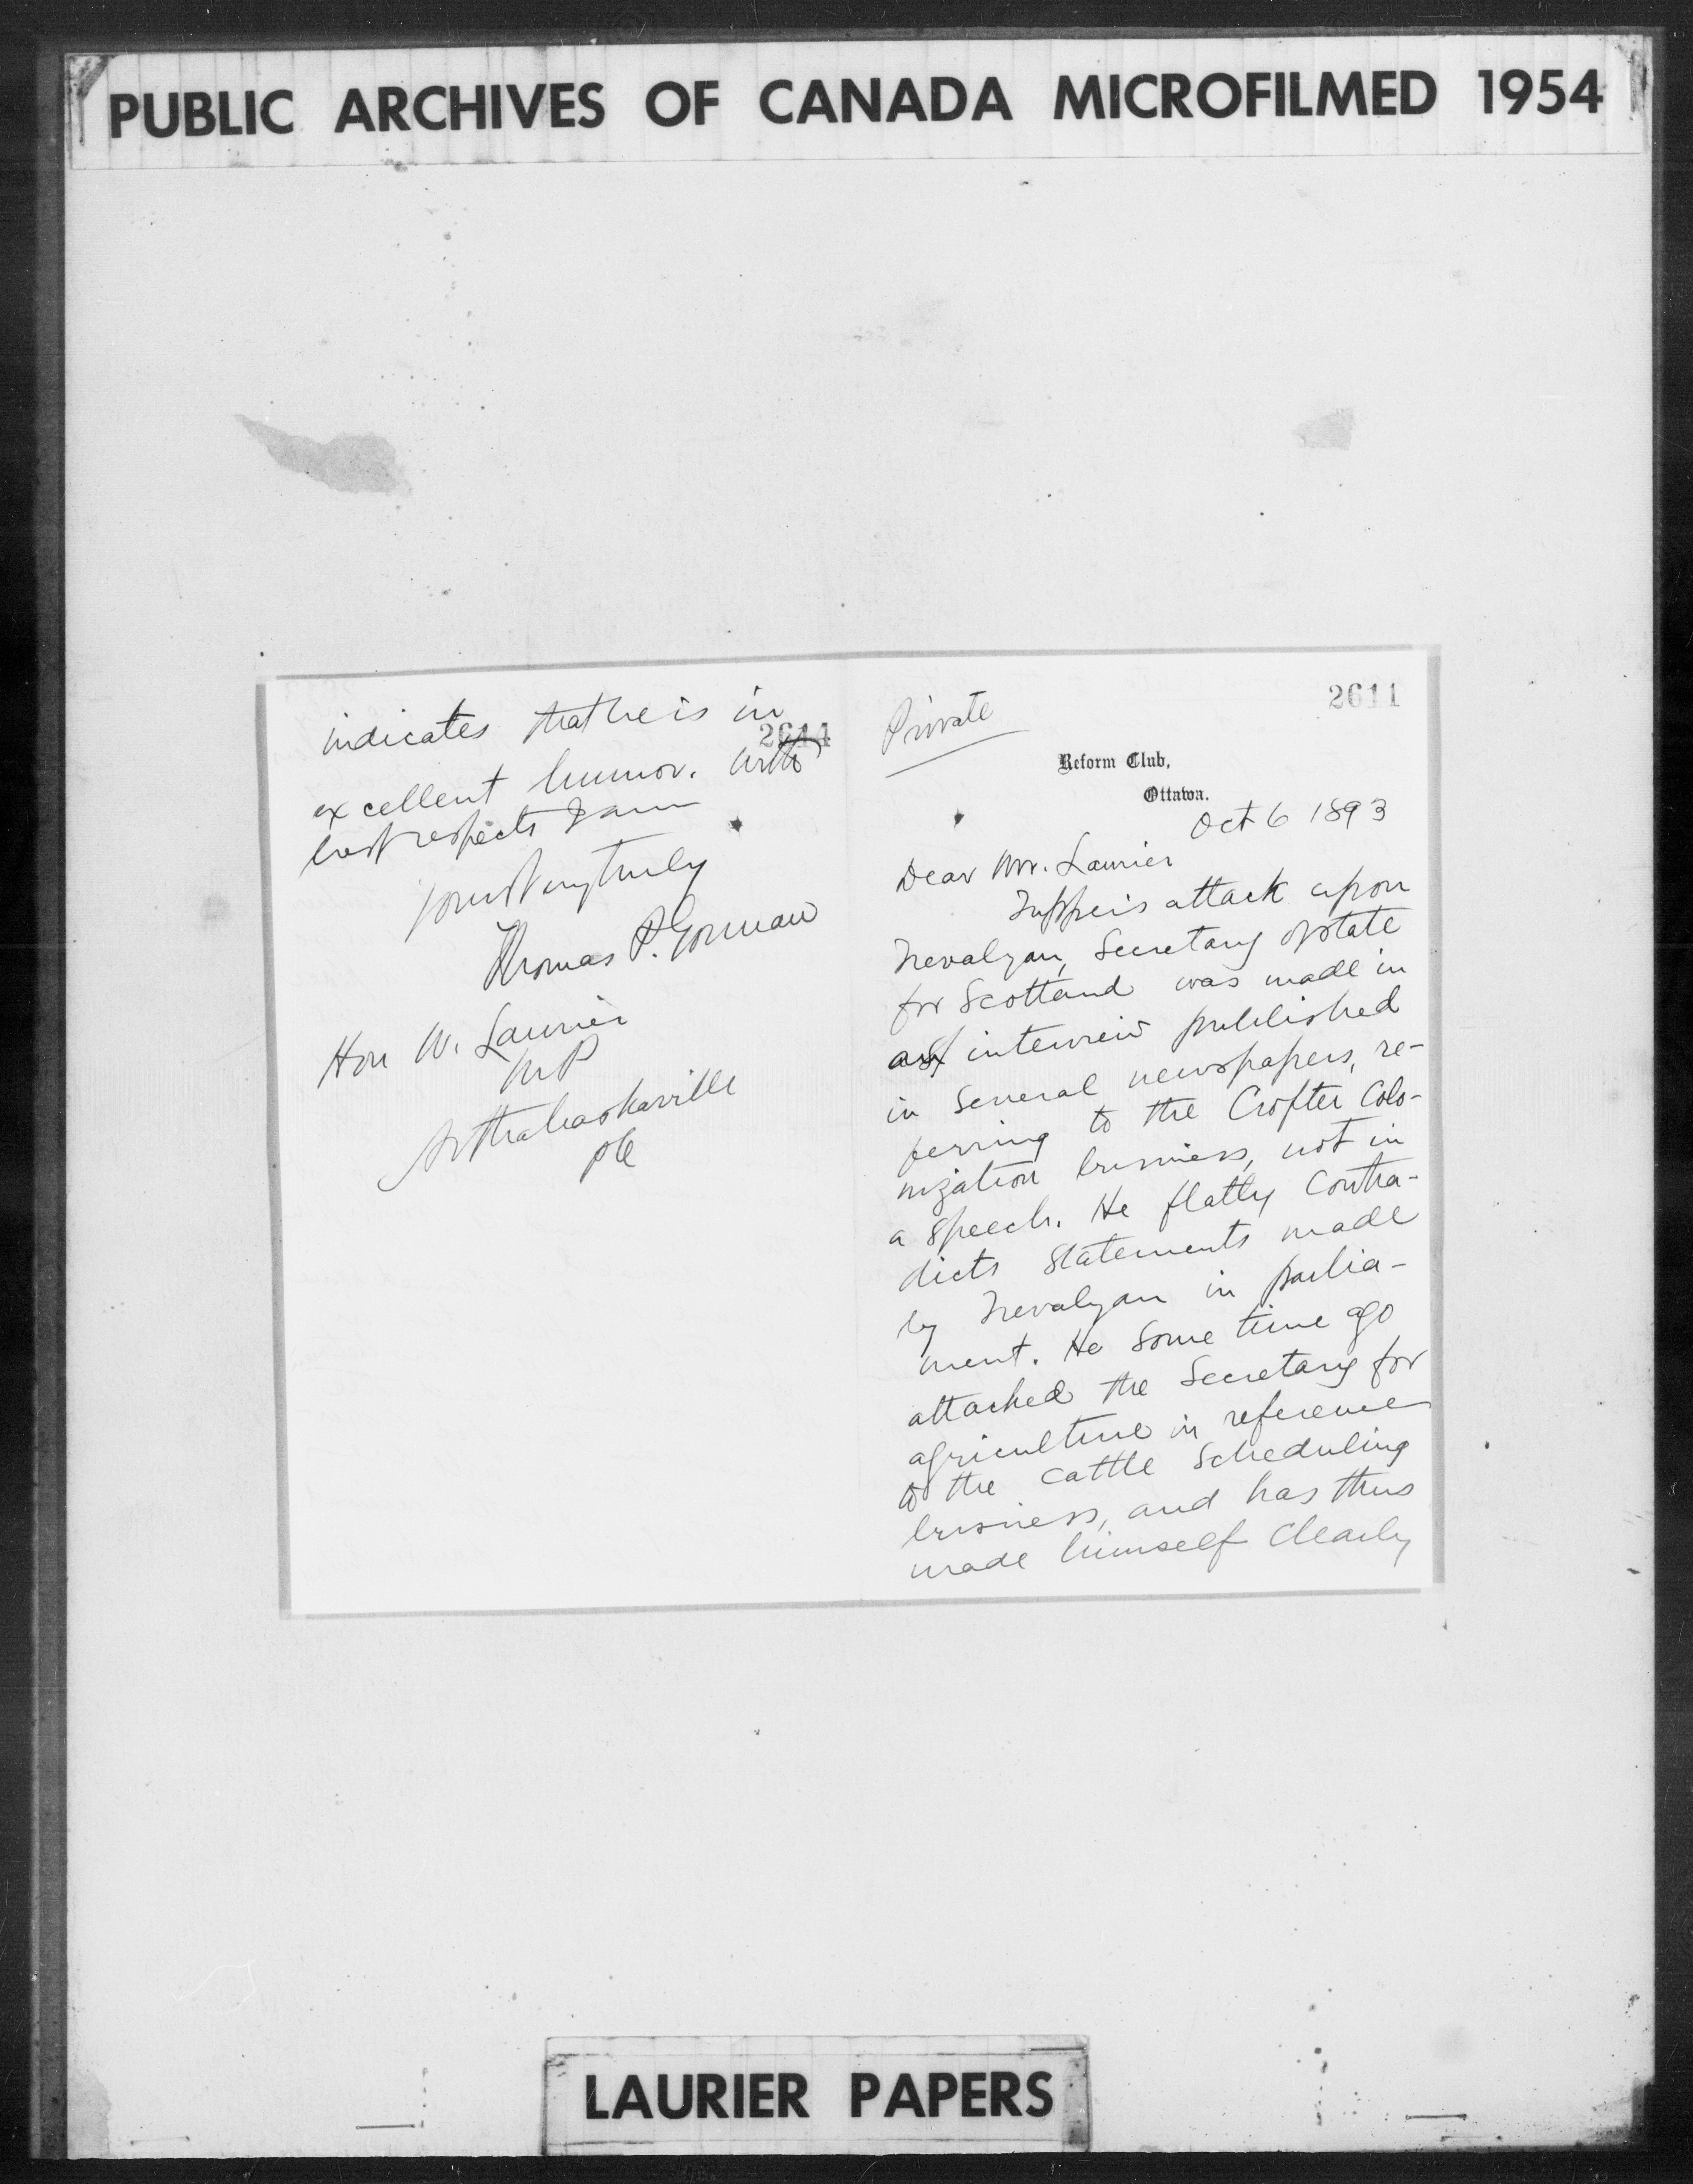 PUBLIC ARCHIVES OF CANADA MICROFILMED 1954
indicates that he is in
2614
excellent humor. With
best respects I am
yours very truly
Thomas P. Gorman
Hon W. Laurier
M P
Arthabaskaville
PQ
2611
Private
Reform Club,
Ottawa.
Oct 6 1893
Dear Mr. Laurier
Tupper's attack upon
Trevalyan, Secretary of State
for Scotland was made in
an interview published
in several newspapers, re-
ferring to the Crofter Colo-
nization business, not in
a speech. He flatly contra-
dicts statements made
by Trevalyan in parlia-
ment. He some time ago
attacked the Secretary for
agriculture in reference
to the cattle scheduling
business, and has thus
made himself clearly
LAURIER PAPERS